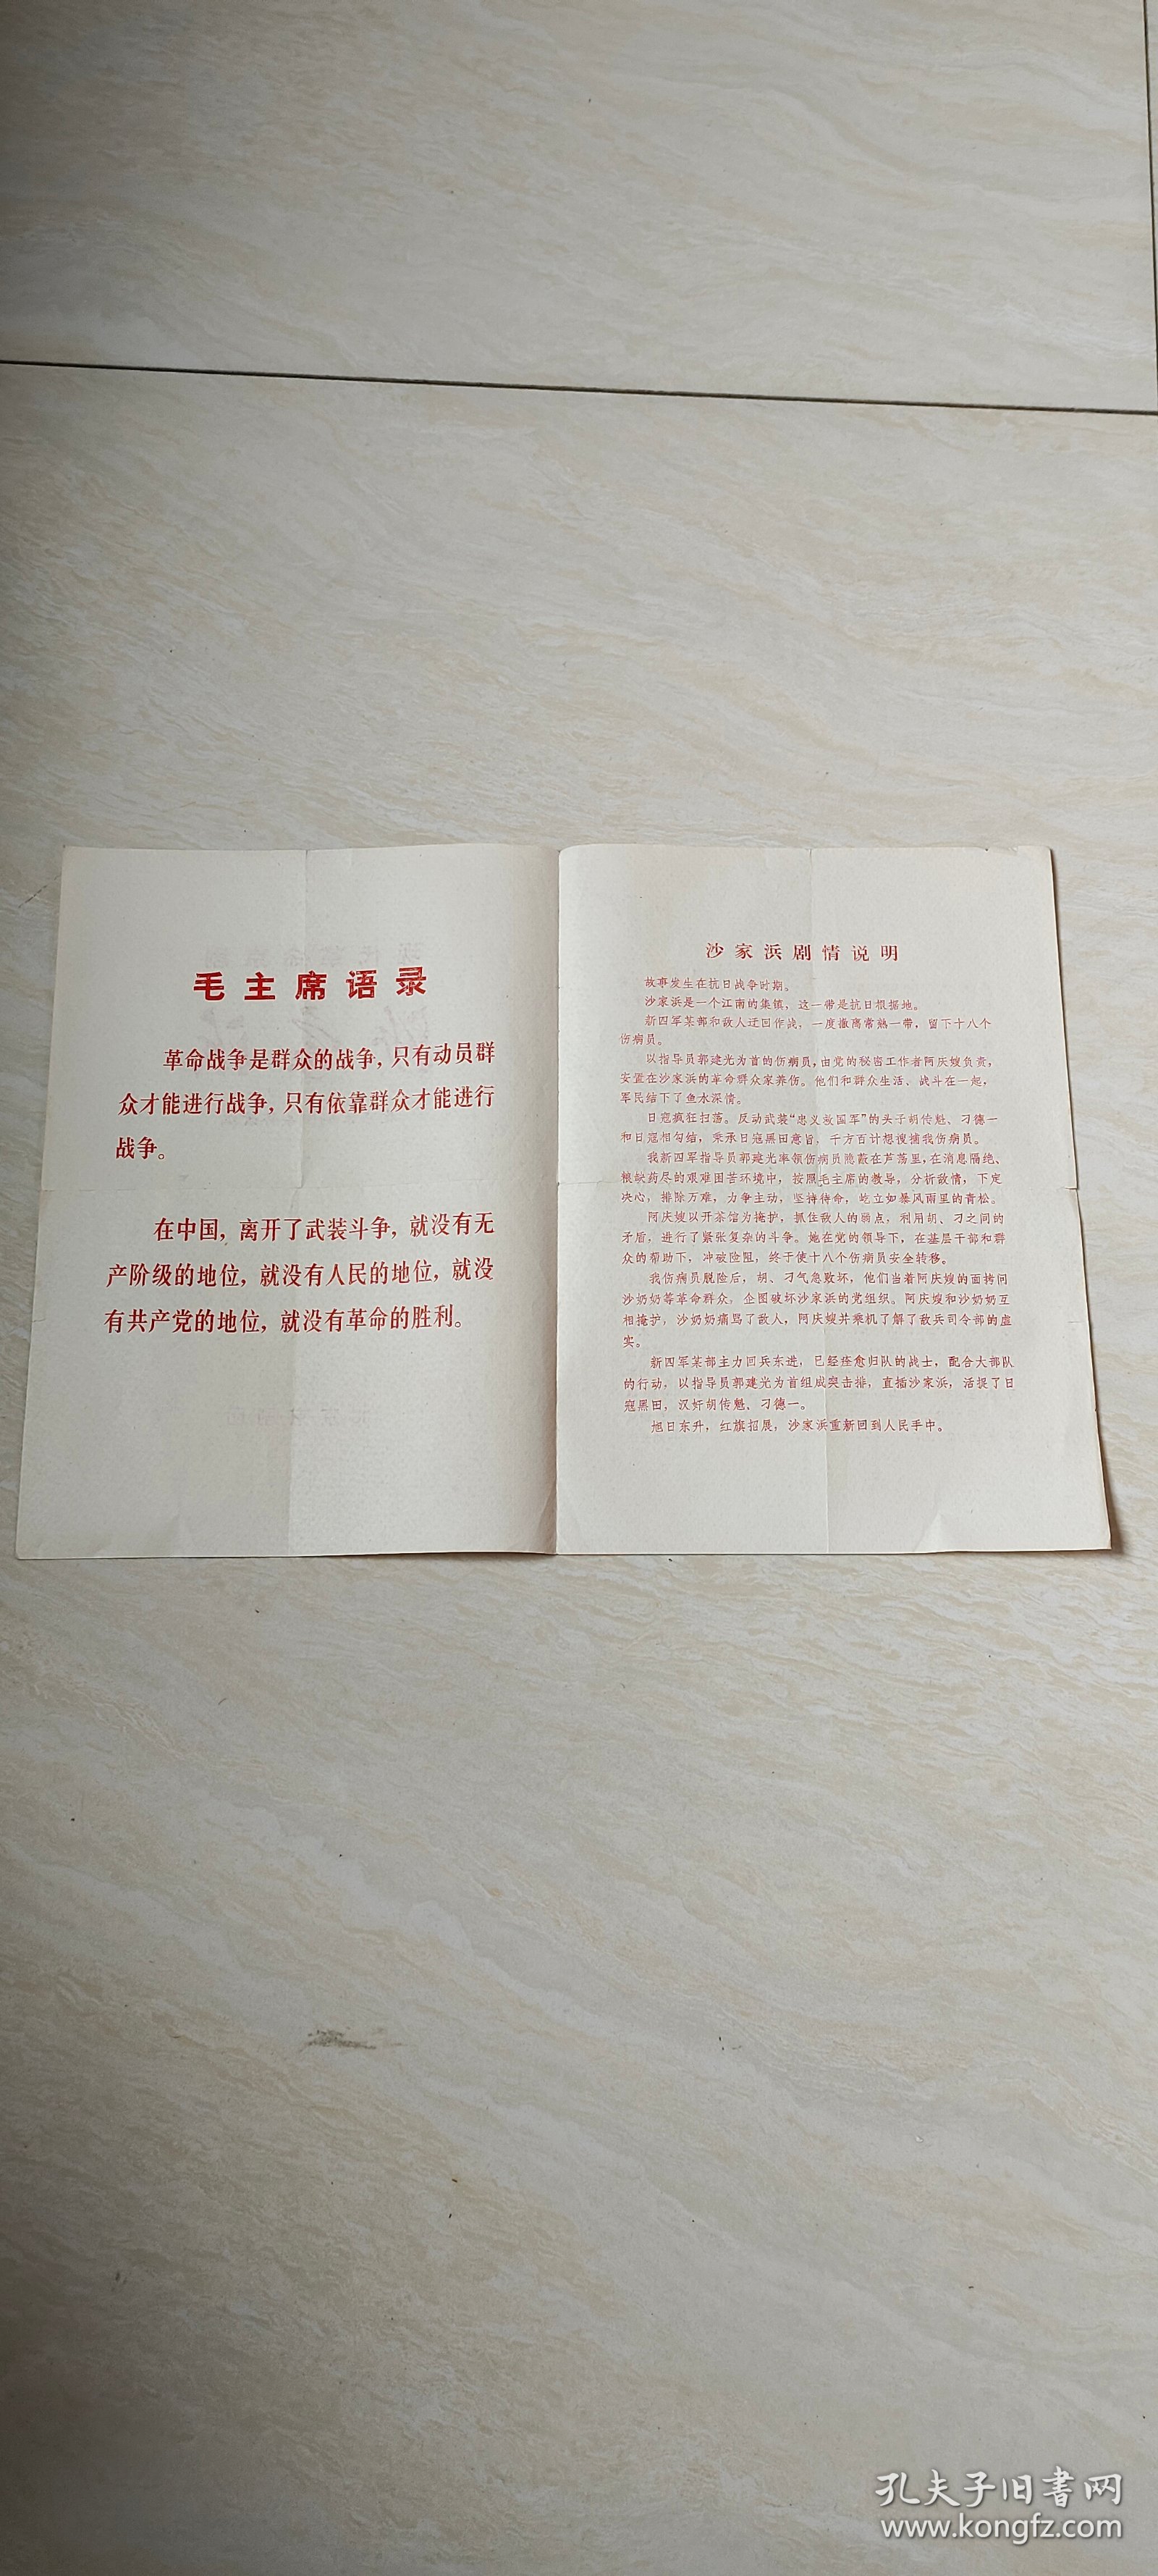 毛主席语录
革命战争是群众的战争，只有动员群
众才能进行战争，只有依靠群众才能进行
战争。
在中国，离开了武装斗争，就没有无
产阶级的地位，就没有人民的地位，就没
有共产党的地位，就没有革命的胜利。
沙家浜剧情说明
故事发生在抗日战争时期。
沙家浜是一个江南的集镇，这一带是抗日根据地。
新四军某部和敌人迂回作战，一度撤离常熟一带，留下十八个
伤病员。
以指导员郭建光为首的伤病员，由党的秘密工作者阿庆嫂负责，
安置在沙家浜的革命群众家养伤。他们和群众生活、战斗在一起，
军民结下了鱼水深情。
日寇疯狂扫荡。反动武装“忠义救国军”的头子胡传魁、刁德一
和日寇相勾结，秉承日寇黑田意旨，千方百计想搜捕我伤病员。
我新四军指导员郭建光率领伤病员隐蔽在芦荡里，在消息隔绝、
粮缺药尽的艰难困苦环境中，按照毛主席的教导，分析敌情，下定
决心，排除万难，力争主动，坚持待命，屹立如暴风雨里的青松。
阿庆嫂以开茶馆为掩护，抓住敌人的弱点，利用胡、刁之间的
矛盾，进行了紧张复杂的斗争。她在党的领导下，在基层干部和群
众的帮助下，冲破险阻，终于使十八个伤病员安全转移。
我伤病员脱险后，胡、刁气急败坏，他们当着阿庆嫂的面拷问
沙奶奶等革命群众，企图破坏沙家浜的党组织。阿庆嫂和沙奶奶互
相掩护，沙奶奶痛骂了敌人，阿庆嫂并乘机了解了敌兵司令部的虚
实。
新四军某部主力回兵东进，已经痊愈归队的战士，配合大部队
的行动，以指导员郭建光为首组成突击排，直插沙家浜，活捉了日
寇黑田，汉奸胡传魁、刁德一。
旭日东升，红旗招展，沙家浜重新回到人民手中。
孔夫子旧书网
www.kongfz.com